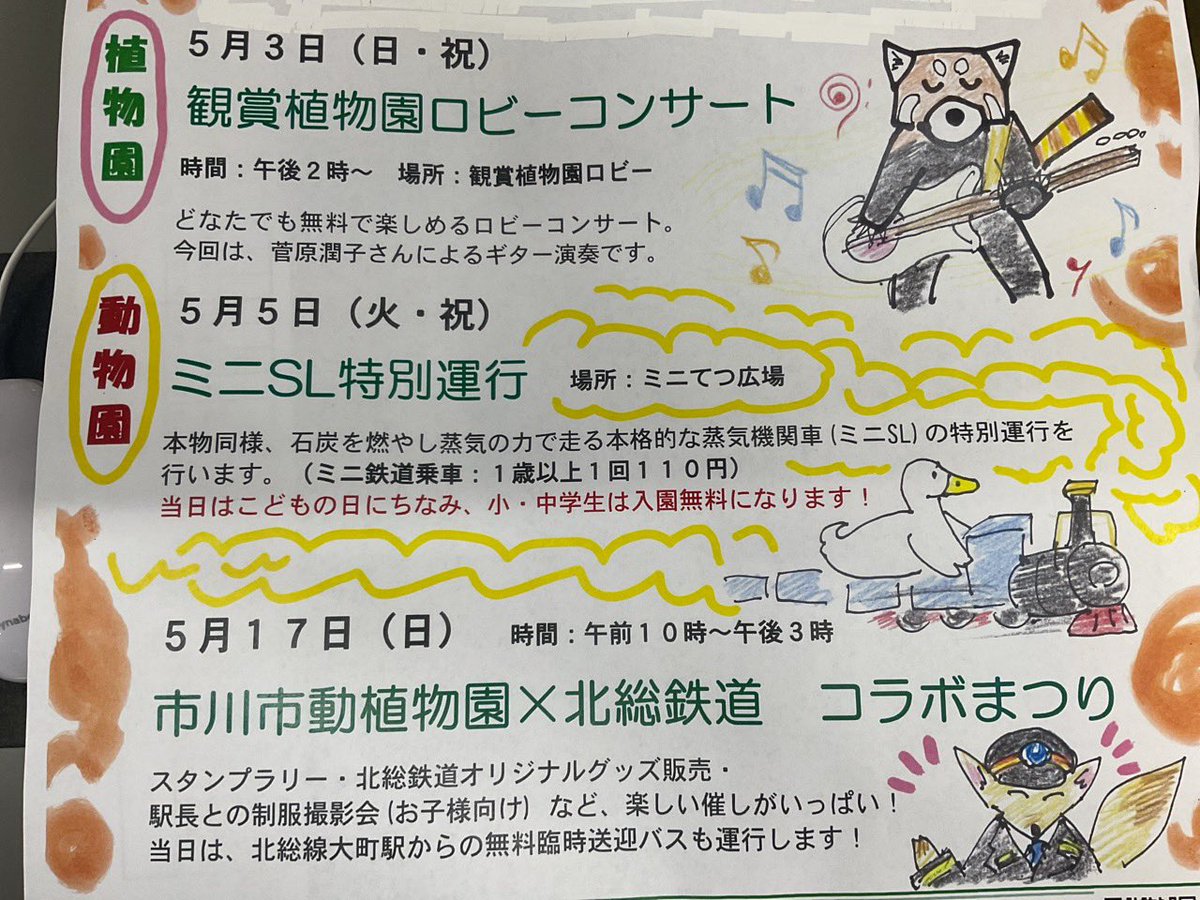 植物園
5月3日（日・祝）
観賞植物園ロビーコンサート
時間：午後2時～　場所：観賞植物園ロビー
どなたでも無料で楽しめるロビーコンサート。
今回は、菅原潤子さんによるギター演奏です。
動物園
5月5日（火・祝）
ミニSL特別運行　場所：ミニてつ広場
本物同様、石炭を燃やし蒸気の力で走る本格的な蒸気機関車(ミニSL)の特別運行を
行います。（ミニ鉄道乗車：1歳以上1回110円）
当日はこどもの日にちなみ、小・中学生は入園無料になります！
5月17日（日）　時間：午前10時～午後3時
市川市動植物園×北総鉄道　コラボまつり
スタンプラリー・北総鉄道オリジナルグッズ販売・
駅長との制服撮影会(お子様向け) など、楽しい催しがいっぱい！
当日は、北総線大町駅からの無料臨時送迎バスも運行します！